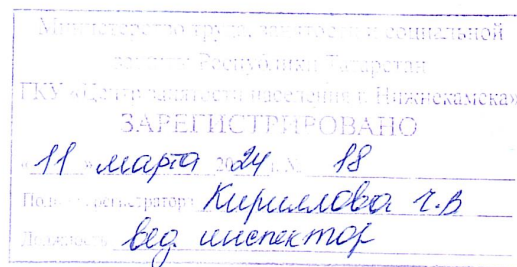 Министерство труда, занятости и социальной
защиты Республики Татарстан
ГКУ «Центр занятости населения г. Нижнекамска»
ЗАРЕГИСТРИРОВАНО
« 11 » марта 2024 г. № 18
Кириллова Ч.В
Должность вед. инспектор